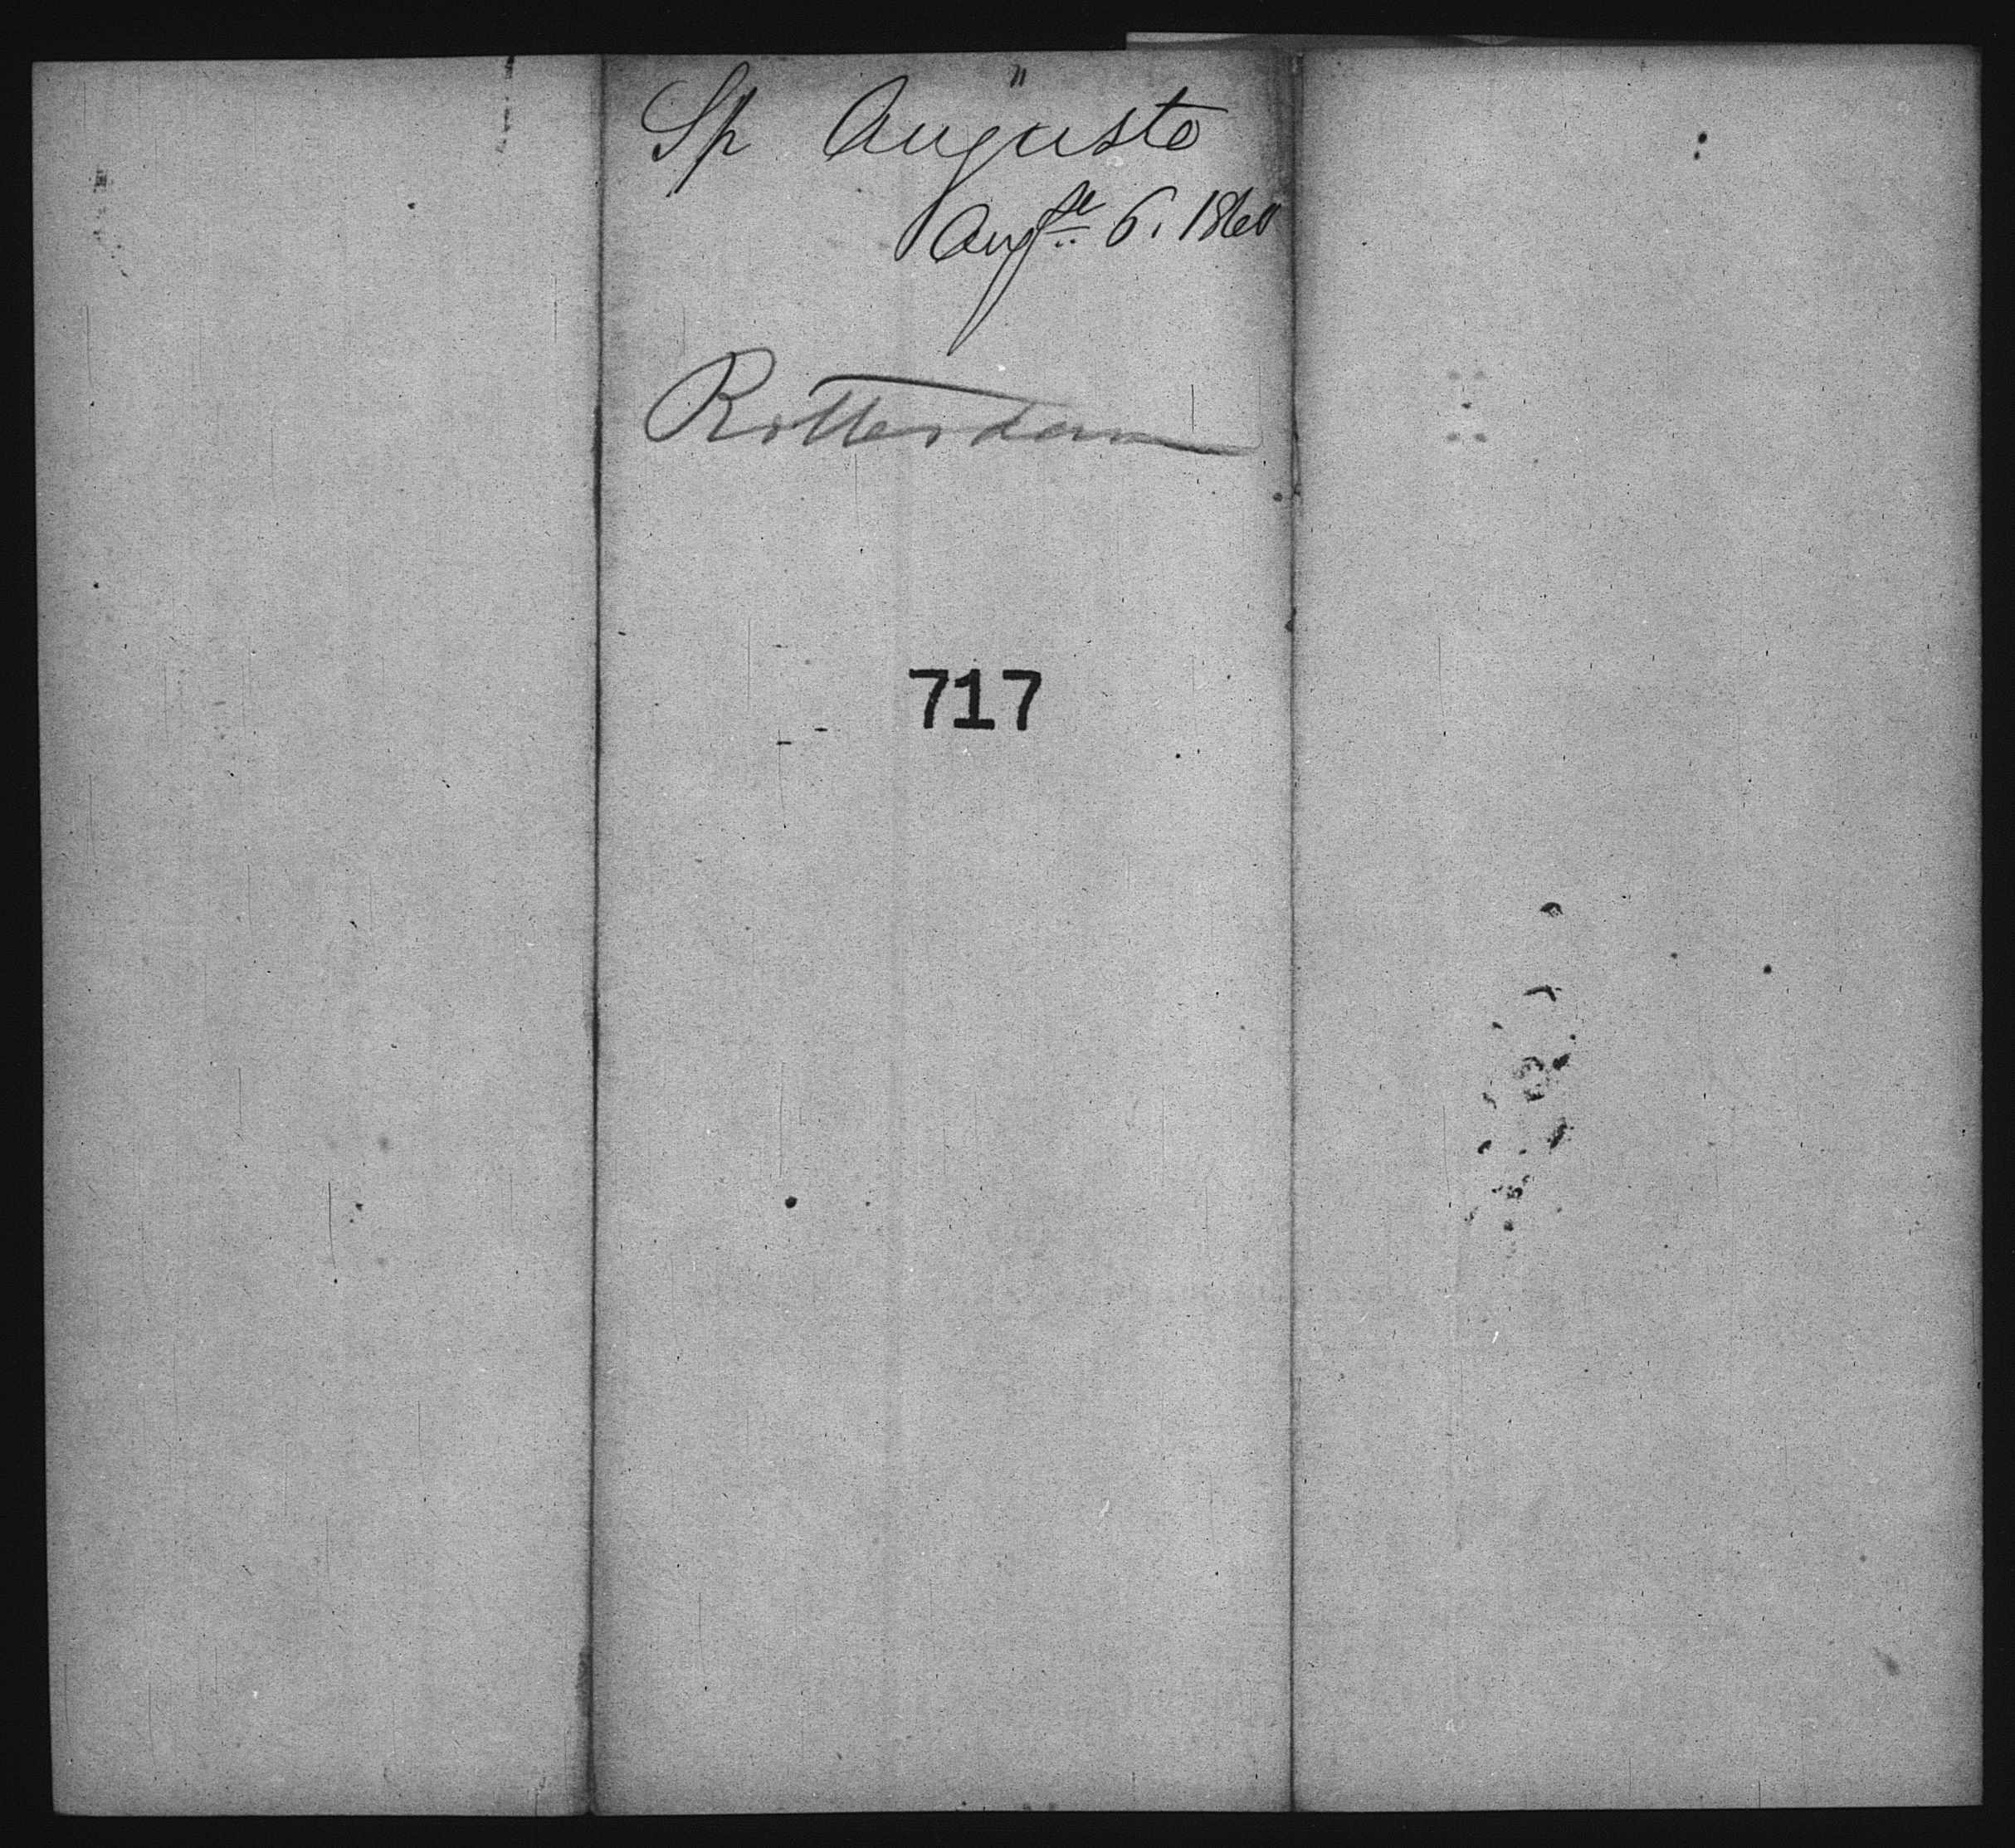 Sp Auguste
Augst 6. 1860
Rotterdam
717